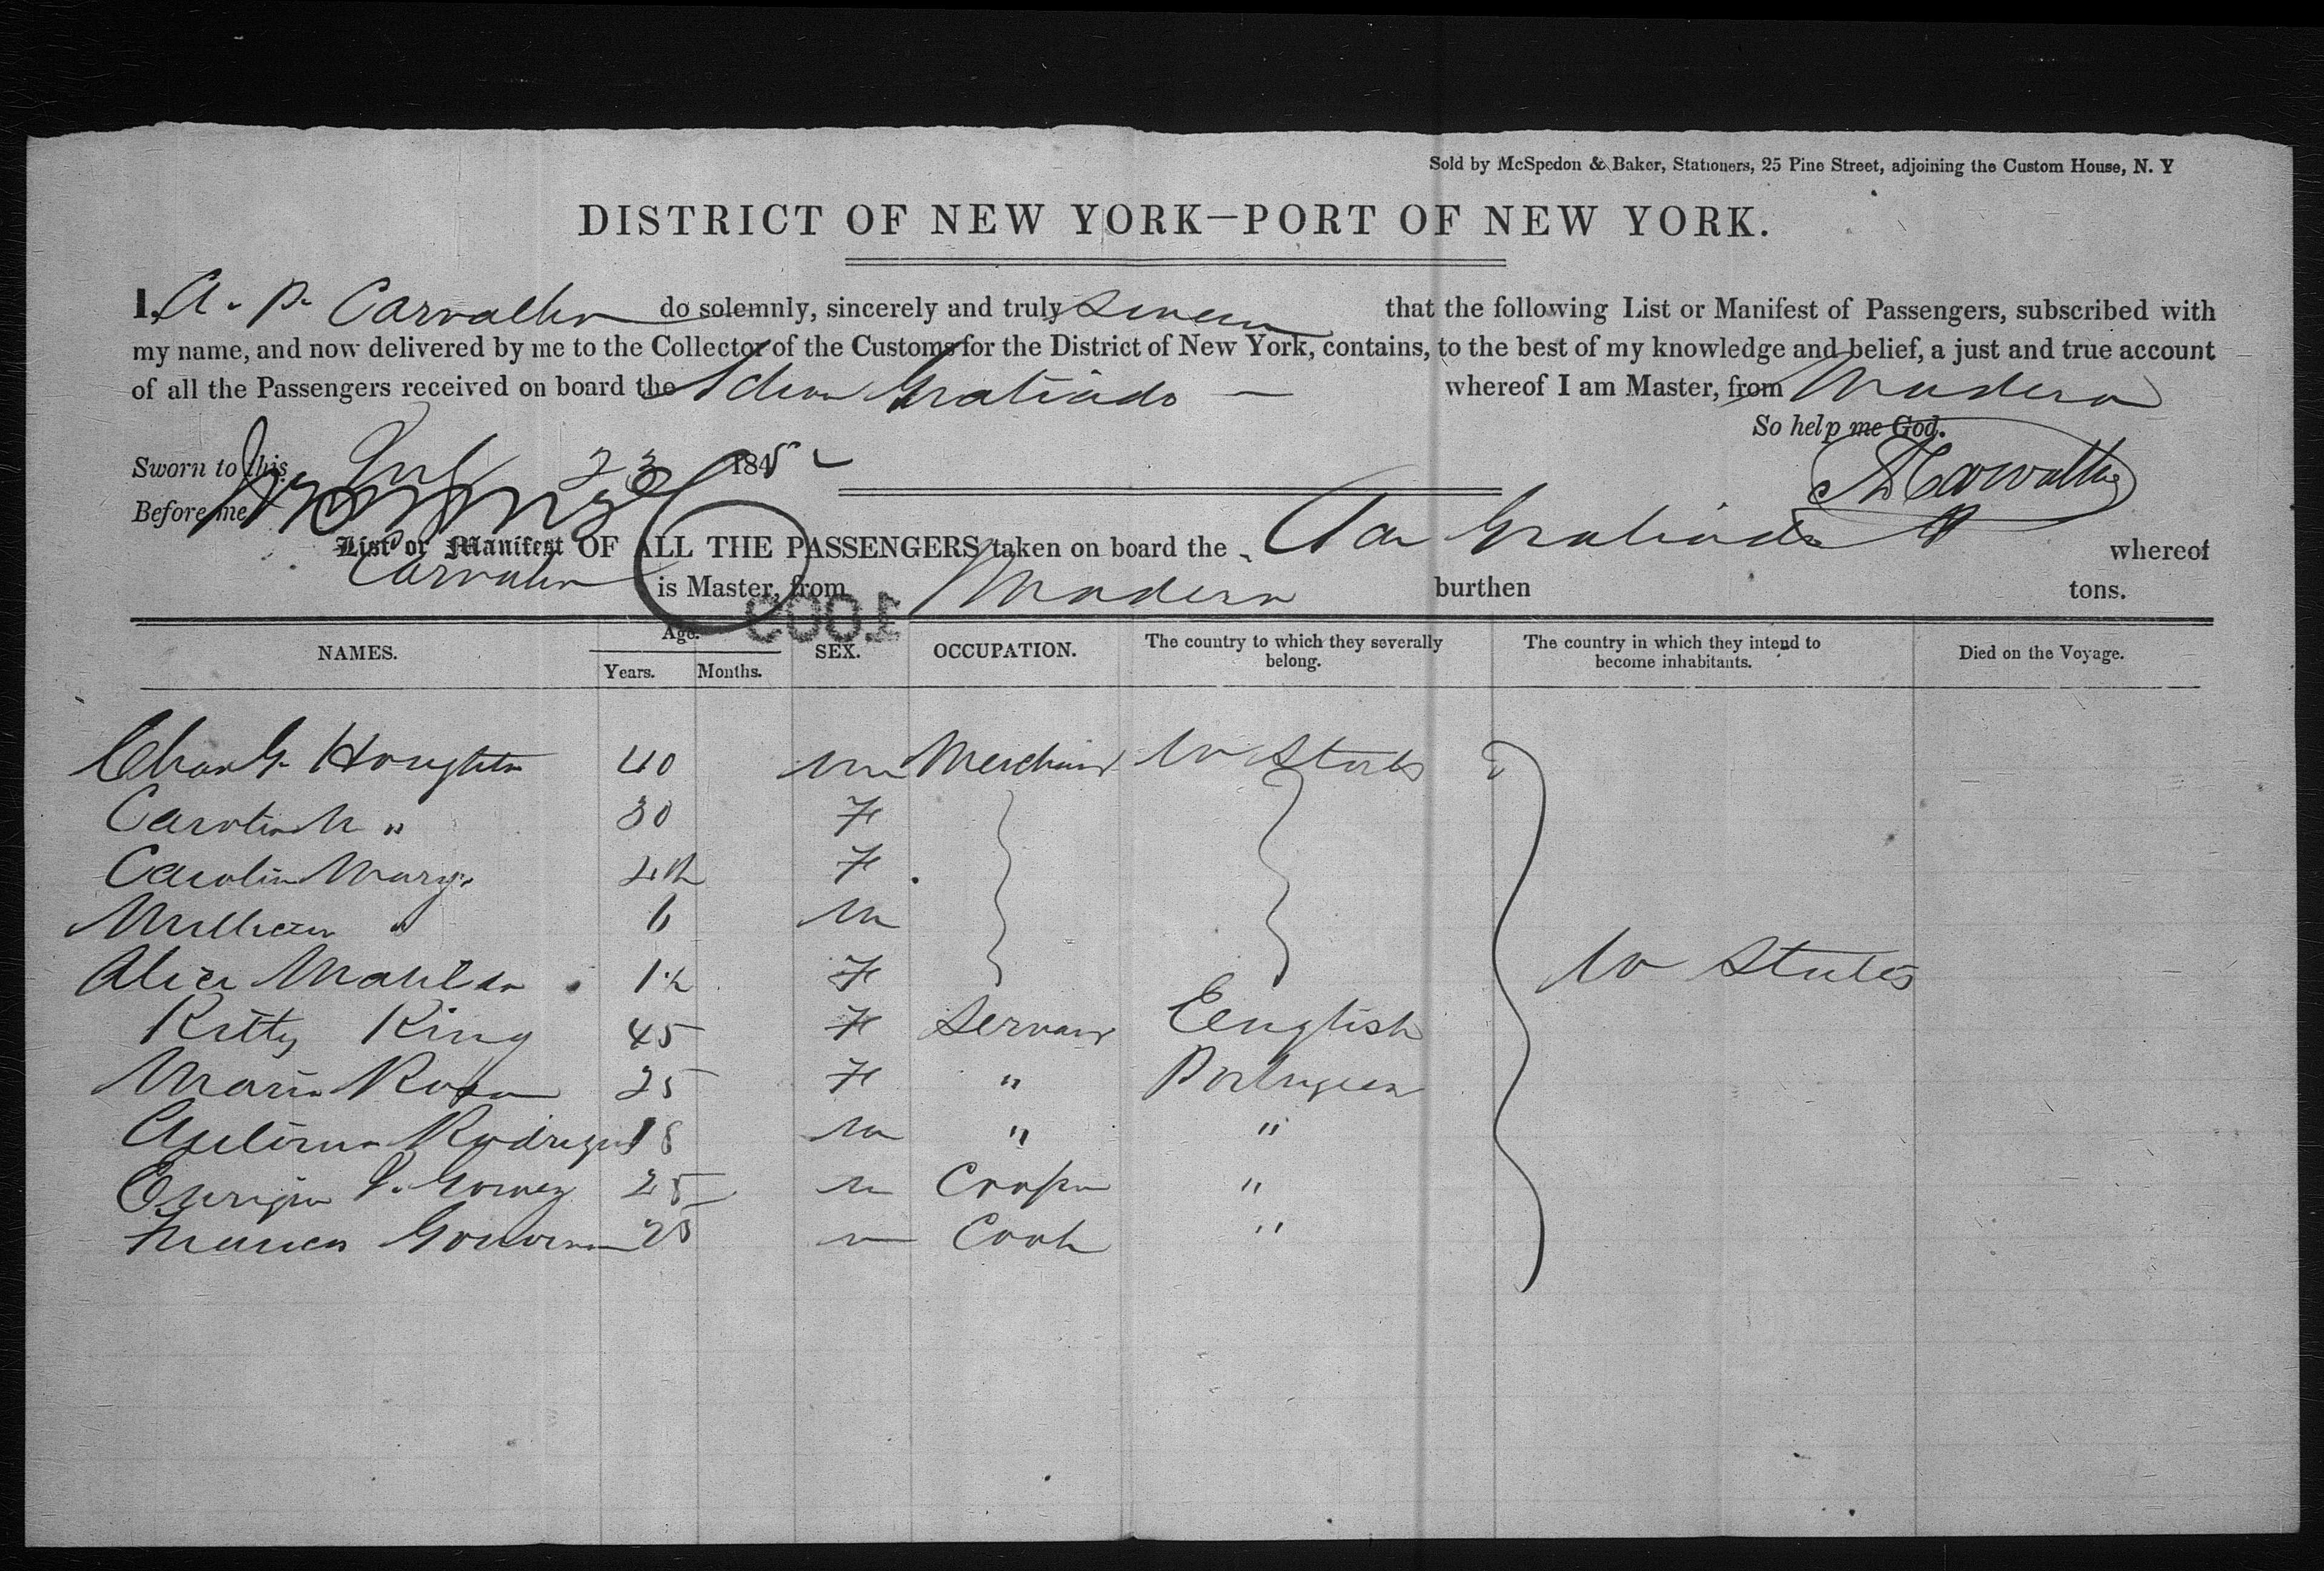 Sold by McSpedon & Baker, Stationers, 25 Pine Street, adjoining the Custom House, N. Y
DISTRICT OF NEW YORK—PORT OF NEW YORK.
I, A. P. Carvalho do solemnly, sincerely and truly swear that the following List or Manifest of Passengers, subscribed with
my name, and now delivered by me to the Collector of the Customs for the District of New York, contains, to the best of my knowledge and belief, a just and true account
of all the Passengers received on board the Schr Gratiado whereof I am Master, from Madera
So help me God.
Sworn to this July 23 1852
A P Carvalho
Before me
List or Manifest OF ALL THE PASSENGERS taken on board the Gratiado whereof
Carvalho is Master, from Madera burthen tons.
1003
NAMES. Age. Years. Months. SEX. OCCUPATION. The country to which they severally belong. The country in which they intend to become inhabitants. Died on the Voyage.
Chas G. Houghton 40 m Merchant U States
Carolin M " 30 F
Carolin Mary " F
William " 6 m
Alice Matilda F U States
Kitty King 45 F Servant Eenglish
Maria Rosa 25 F " Portugeea
Rodrigues 18 m " "
J. Gomez 25 m Cooper "
25 m Cook "